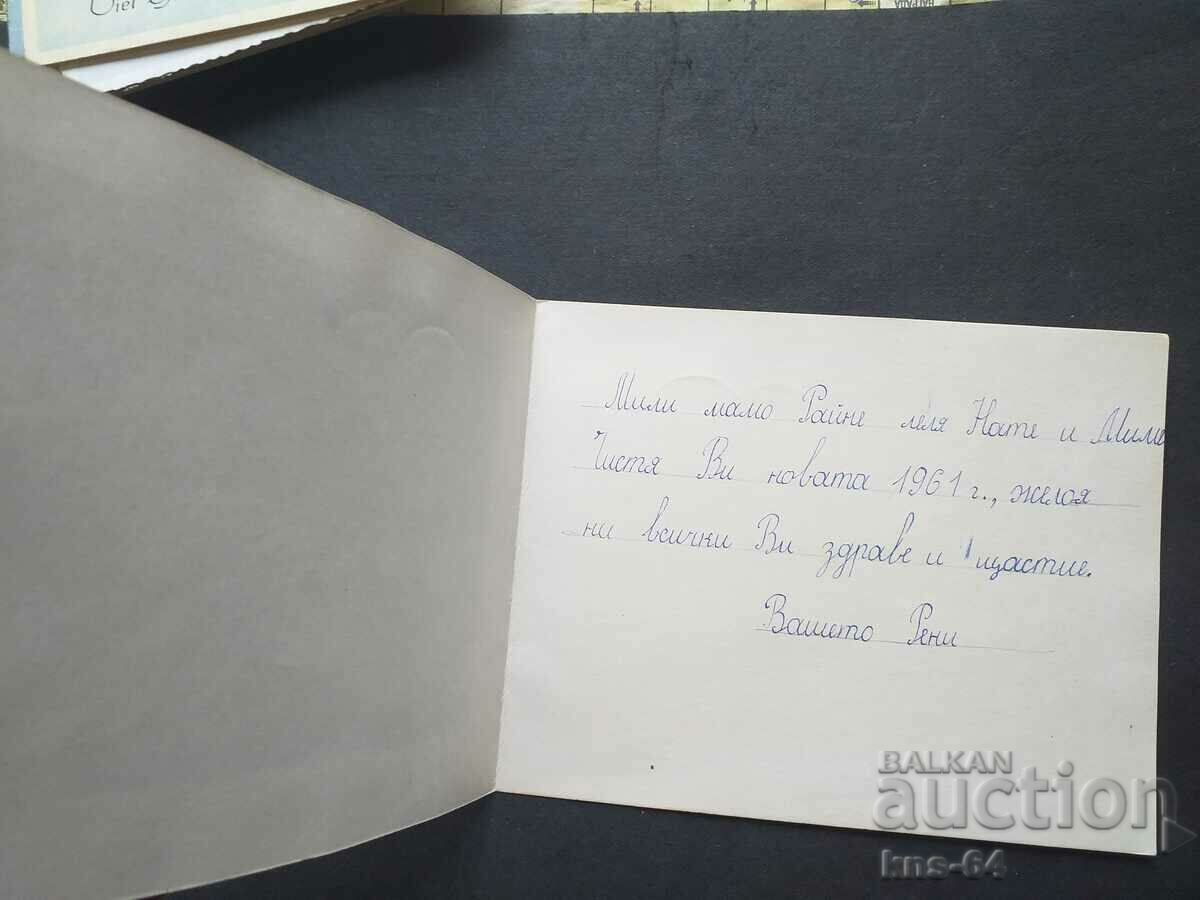 Viel
НАГРАДА
Мили мамо Райне леля Нате и Миме
Чистя Ви новата 1961 г., желая
ни всички Ви здраве и щастие.
Вашето Рени
BALKAN
auction
kns-64